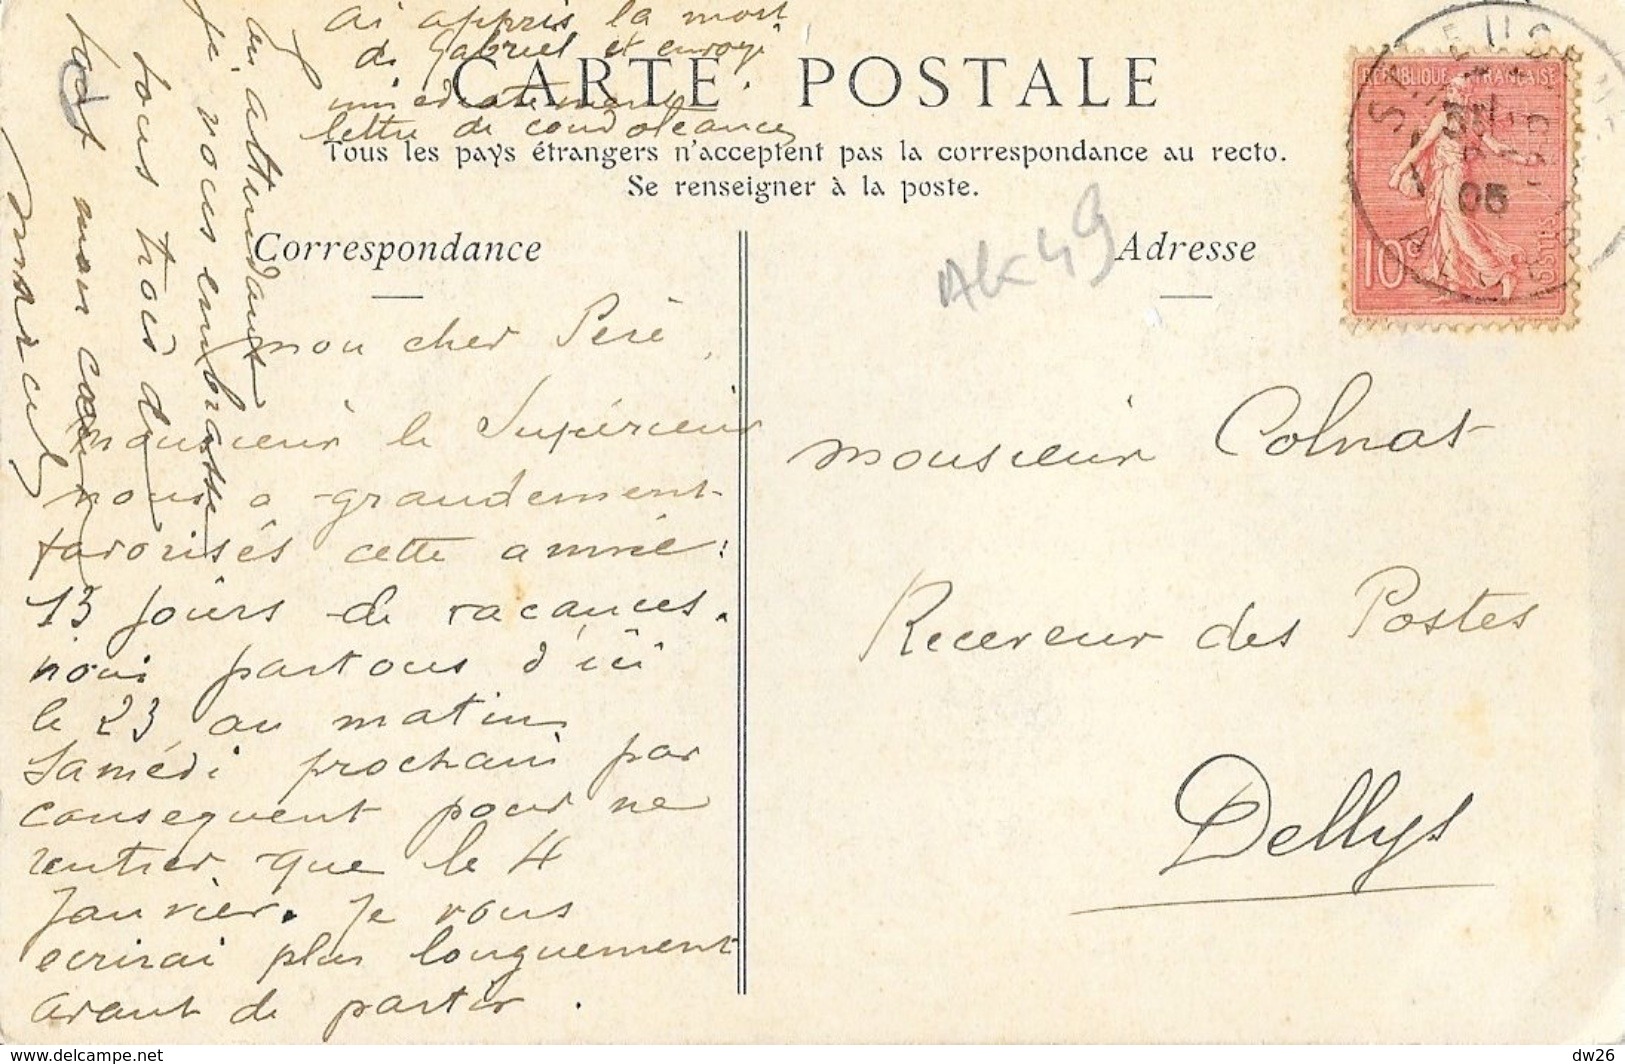 ai appris la mort
de Gabriel et envoyé
immédiatement
lettre de condoléances
CARTE POSTALE
Tous les pays étrangers n'acceptent pas la correspondance au recto.
Se renseigner à la poste.
Correspondance
Adresse
Ak 49
REPUBLIQUE FRANÇAISE
10c
POSTES
05
ALGER
mon cher Père,
monsieur le Supérieur
nous a grandement
favorisés cette année :
13 jours de vacances.
nous partons d'ici
le 23 au matin
Samedi prochain par
consequent pour ne
rentrer que le 4
Janvier. Je vous
ecrirai plus longuement
avant de partir.
en attendant
je vous embrasse
tous trois de
tout mon cœur
marcel
monsieur Colnat
Receveur des Postes
Dellys
www.delcampe.net
dw26